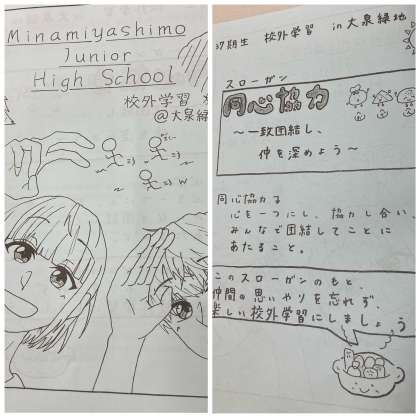 Minamiyashimo
Junior
High School
校外学習
@大泉緑
w
37期生 校外学習 in 大泉緑地
スローガン
同心協力
〜一致団結し、
仲を深めよう〜
同心協力は
心を一つにし、協力し合い、
みんなで団結してことに
あたること。
このスローガンのもと、
仲間の思いやりを忘れず
楽しい校外学習にしましょう